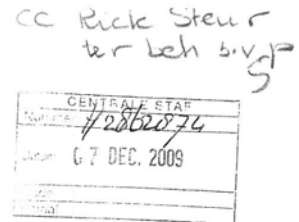 CC Rick Steur
ter beh s.v.p
CENTRALE STAF
Nummer 12862874
Datum 07 DEC. 2009